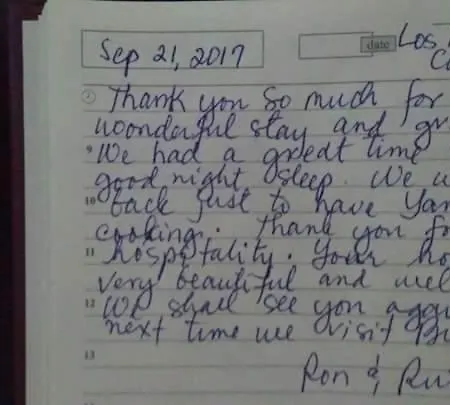 Sep 21, 2017
date Los
Thank you so much for
woonderful stay and gr
9 We had a great time
good night sleep. We w
10 back just to have Yam
cooking. Thank you fo
11 hospitality. Your ho
very beautiful and wel
12 We shall see you again
next time we visit
13
Ron &